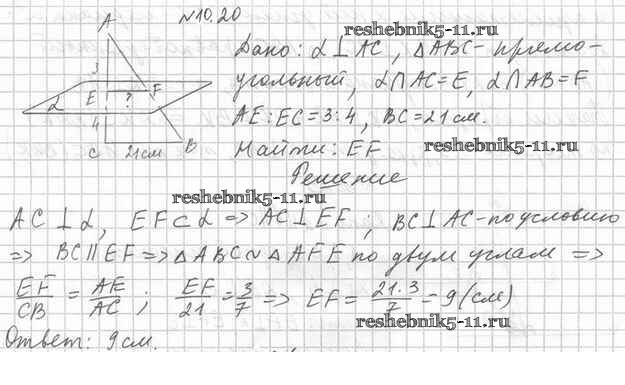 №10.20
reshebnik5-11.ru
A
3
E
?
F
α
4
C
21см
B
Дано: α⊥AC, △ABC-прямо-
угольный, α∩AC=E, α∩AB=F
AE:EC=3:4, BC=21см.
Найти: EF
reshebnik5-11.ru
Решение
reshebnik5-11.ru
AC⊥α, EF⊂α=>AC⊥EF; BC⊥AC-по условию
=> BC∥EF=>△ABC∾△AFE по двум углам =>
EF/CB = AE/AC; EF/21=3/7=> EF= 21·3/7=9(см)
reshebnik5-11.ru
Ответ: 9см.